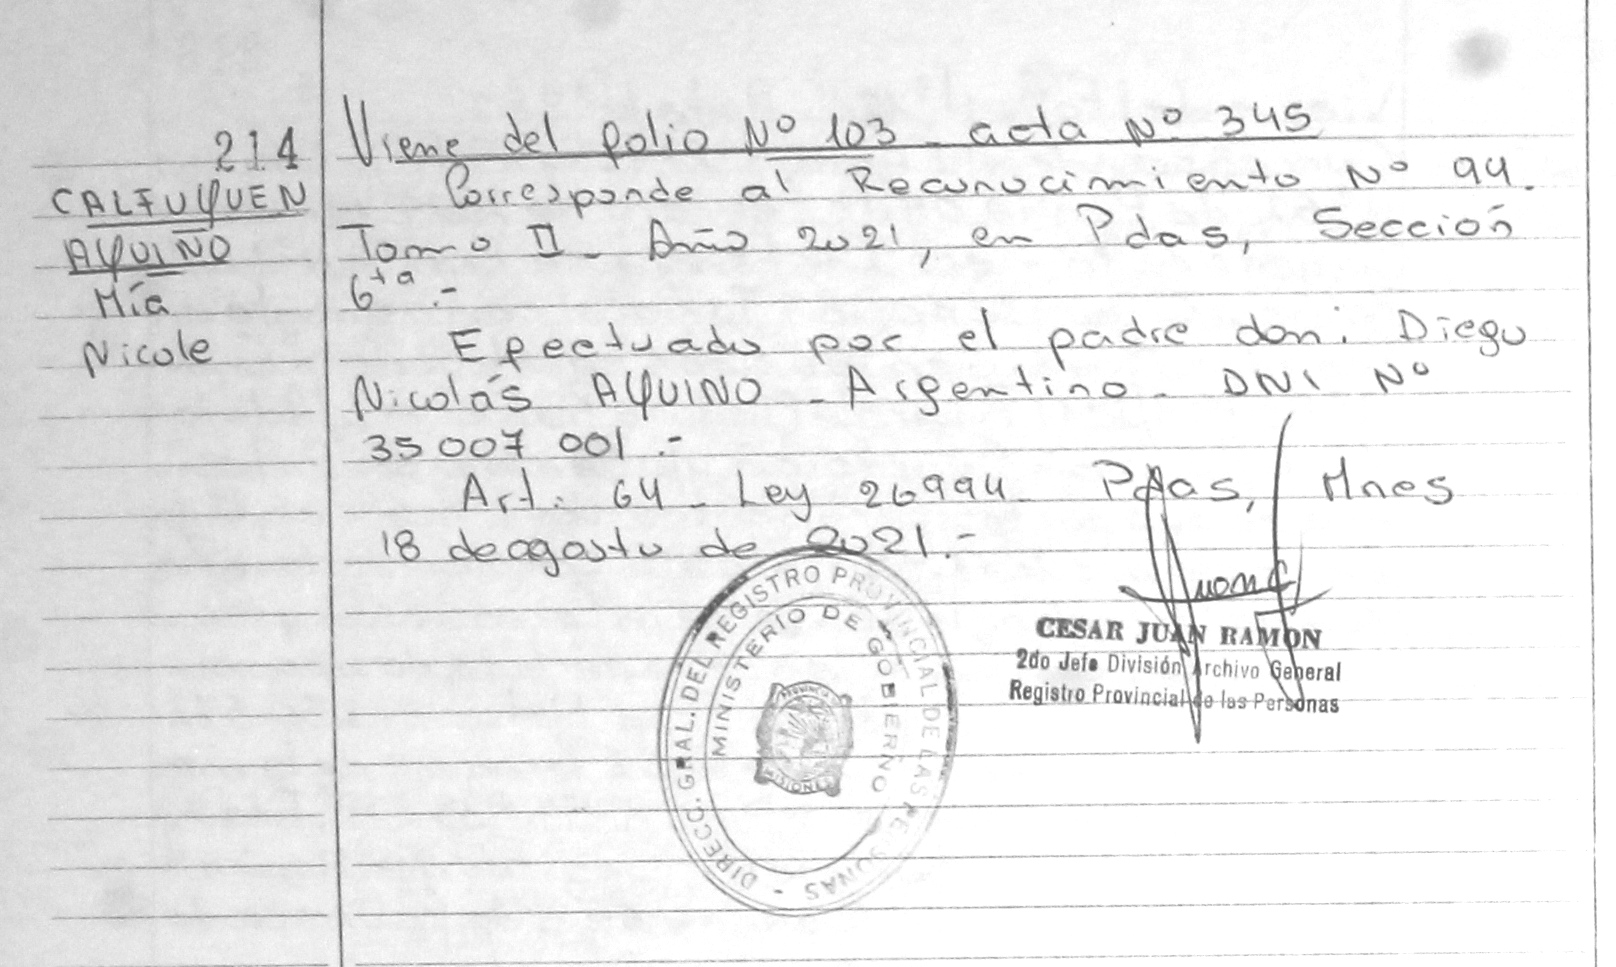 214
CALFUQUEN
AQUINO
Mía
Nicole
Viene del folio Nº 103 - acta Nº 345
Corresponde al Reconocimiento Nº 94.
Tomo II - Año 2021, en Pdas, Sección
6ta.-
Efectuado por el padre don: Diego
Nicolás AQUINO - Argentino - DNI Nº
35 007 001.-
Art: 64 - Ley 26994 - Pdas, Mnes
18 de agosto de 2021.-
CESAR JUAN RAMON
2do Jefe División Archivo General
Registro Provincial de las Personas
DIRECC. GRAL. DEL REGISTRO PROVINCIAL DE LAS PERSONAS -
MINISTERIO DE GOBIERNO
PROVINCIA
MISIONES